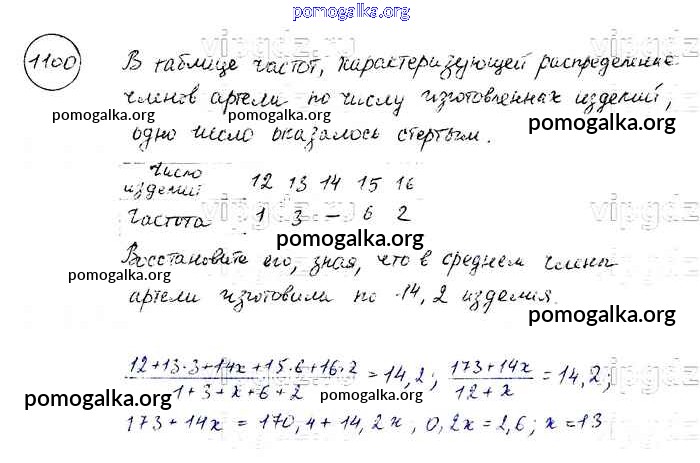 pomogalka.org
1100
В таблице частот, характеризующей распределение
членов артели по числу изготовленных изделий,
pomogalka.org
pomogalka.org
pomogalka.org
одно число оказалось стертым.
Число
изделий 12 13 14 15 16
Частота 1 3 – 6 2
vipgdz
pomogalka.org
Восстановите его, зная, что в среднем члены
pomogalka.org
артели изготовили по 14,2 изделия.
pomogalka.org
12+13·3+14x+15·6+16·2 / 1+3+x+6+2 = 14,2; 173+14x / 12+x = 14,2;
pomogalka.org
pomogalka.org
pomogalka.org
173+14x = 170,4+14,2x, 0,2x=2,6; x=13